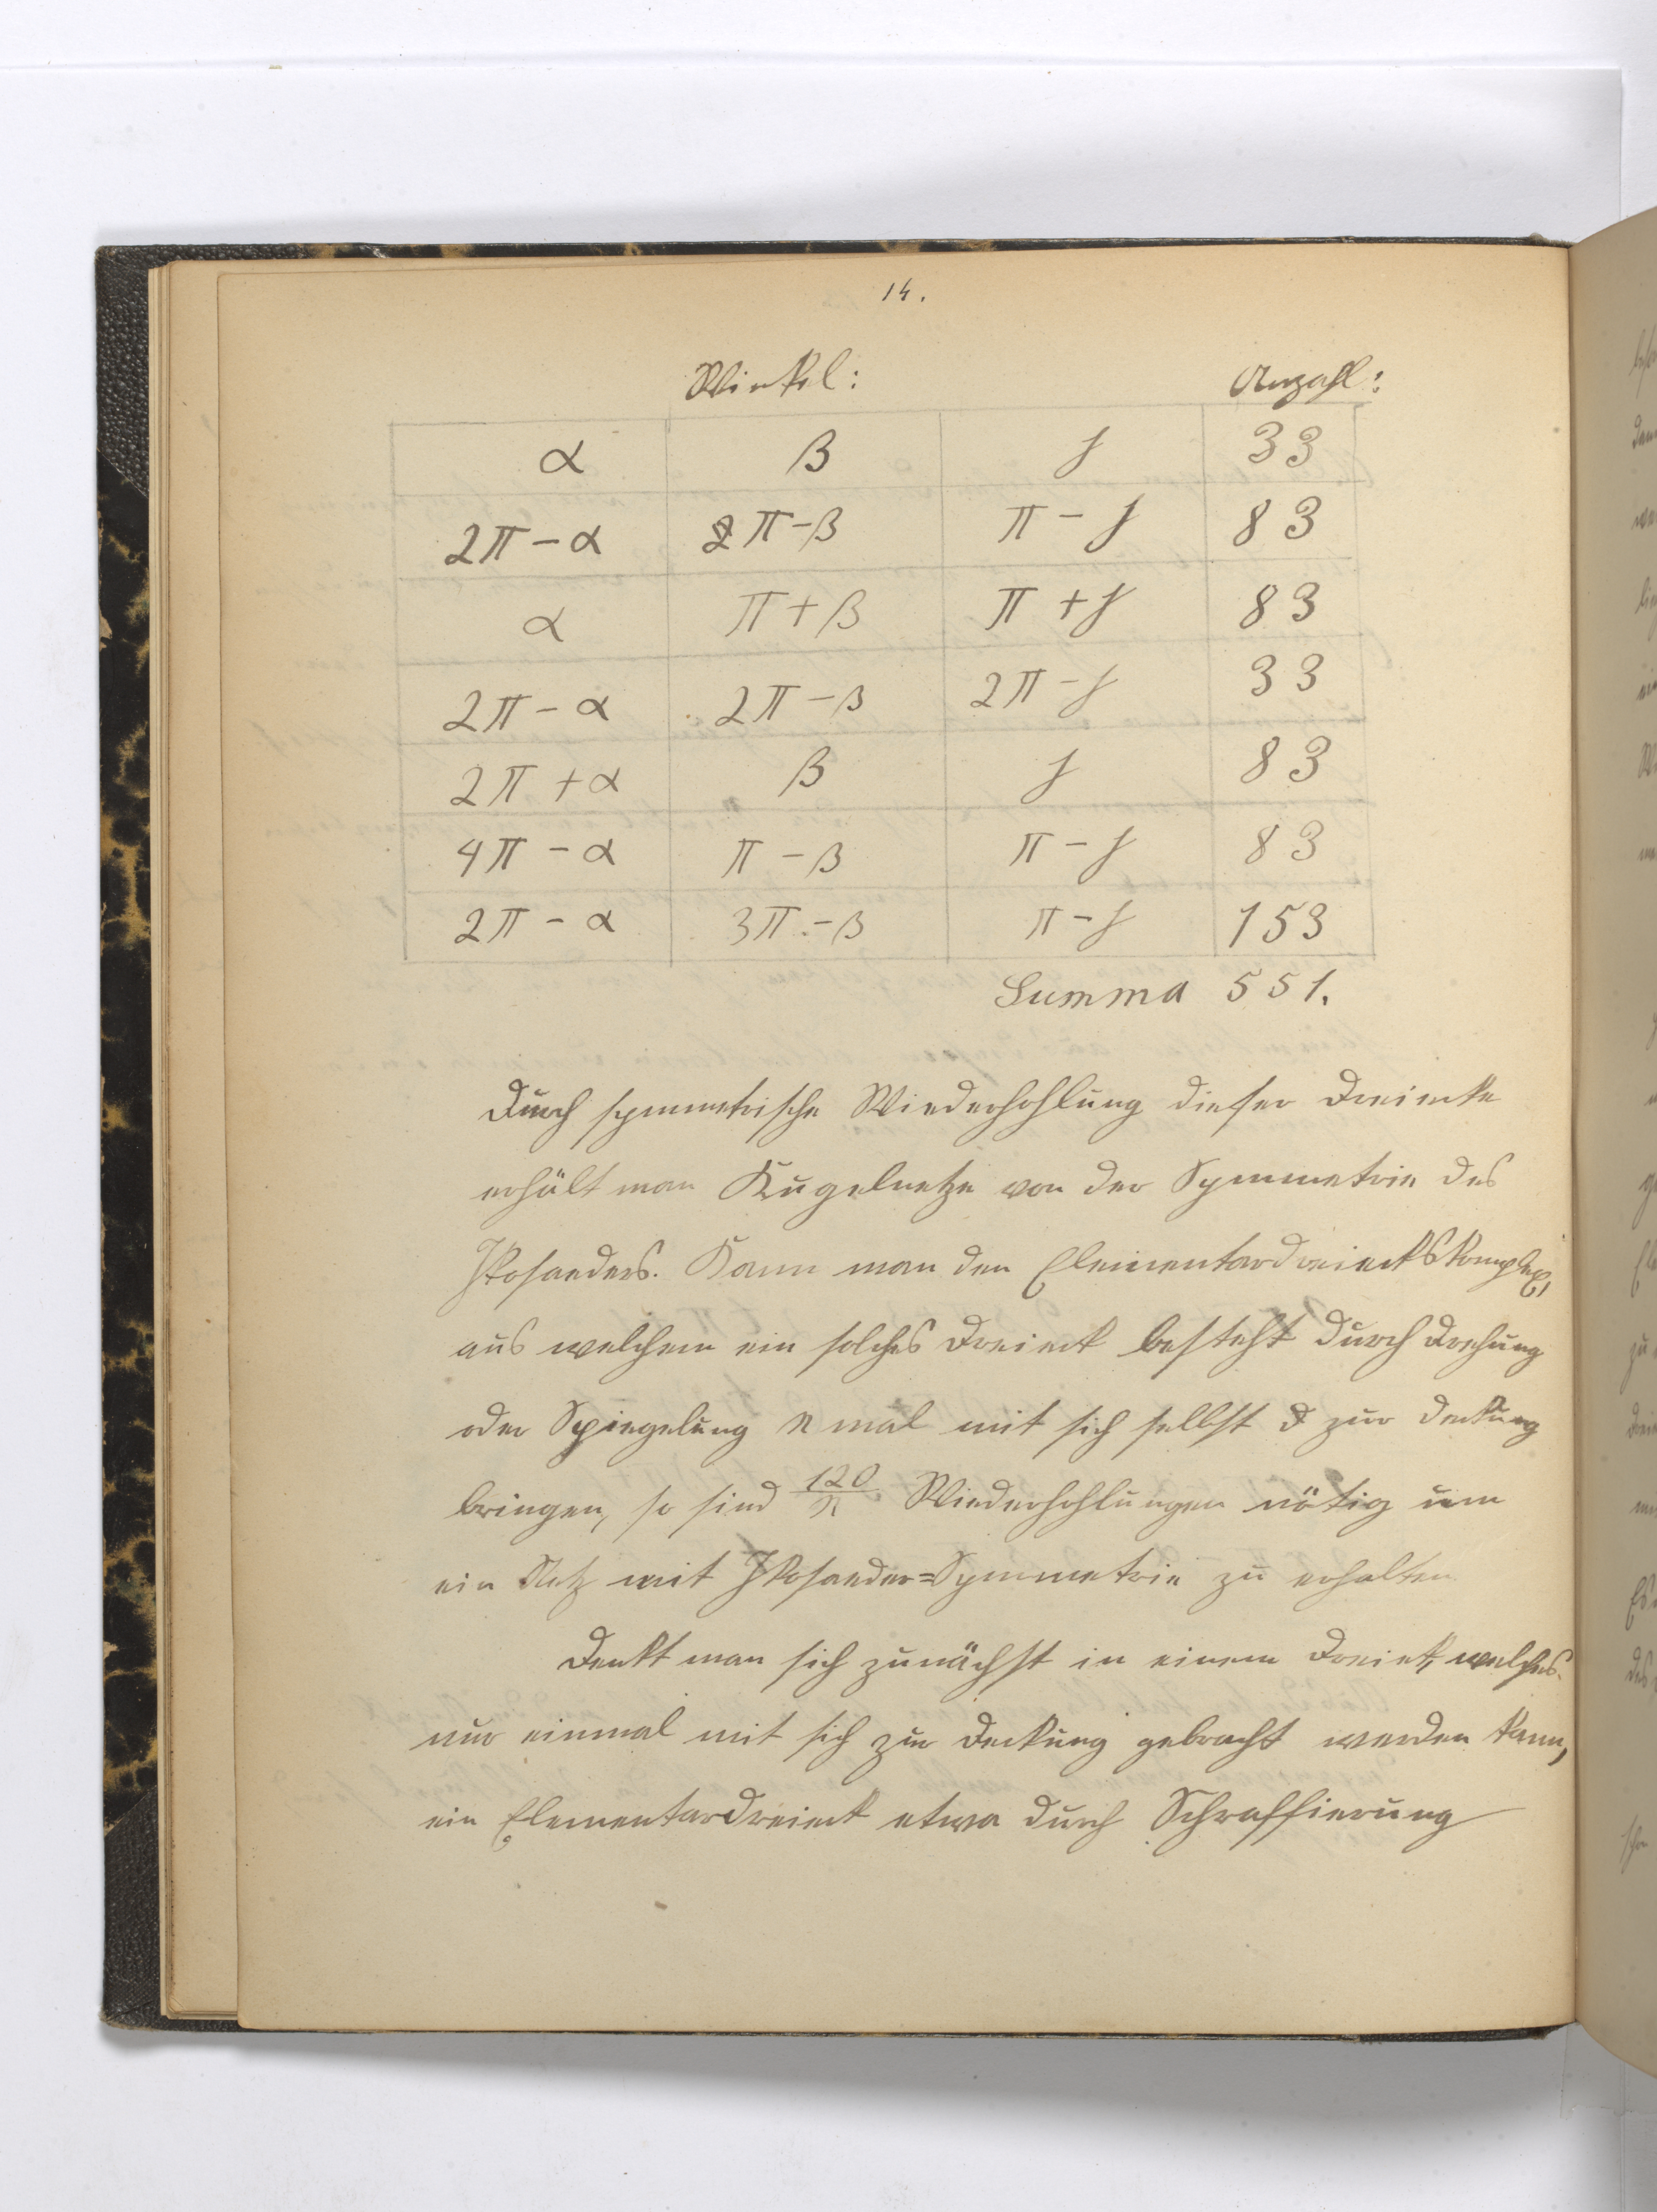 14.
Winkel: Anzahl:
α β γ 33
2π-α 2π-β π-γ 83
α π+β π+γ 83
2π-α 2π-β 2π-γ 33
2π+α β γ 83
4π-α π-β π-γ 83
2π-α 3π-β π-γ 153
Summa 551.
Durch symmetrische Wiederhohlung dieser Dreiecke
erhält man Kugelnetze von der Symmetrie des
Ikosaeders. Kann man den Elementardreieckskomplex,
aus welchem ein solches Dreieck besteht durch Drehung
oder Spiegelung n mal mit sich selbst zur Deckung
bringen, so sind 120/n Wiederhohlungen nötig um
ein Netz mit Ikosaeder=Symmetrie zu erhalten
Denkt man sich zunächst in einem Dreieck, welches
nur einmal mit sich zur Deckung gebracht werden kann,
ein Elementardreieck etwa durch Schraffierung